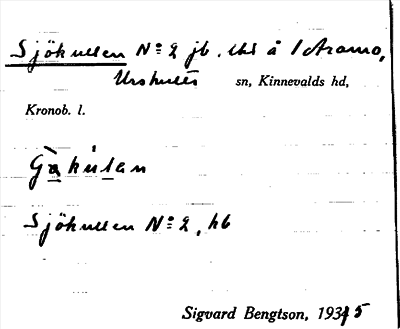 Sjökullen No 2 jb. ehs å 1 Aramo,
Urshults sn, Kinnevalds hd,
Kronob. l.
Sjökullen No 2, hb
Sigvard Bengtson, 1935